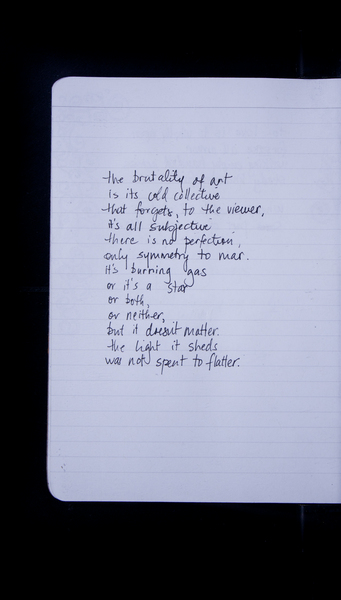 the brutality of art
is its cold collective
that forgets, to the viewer,
it's all subjective
there is no perfection,
only symmetry to mar.
it's burning gas
or it's a star
or both,
or neither,
but it doesn't matter.
the light it sheds
was not spent to flatter.